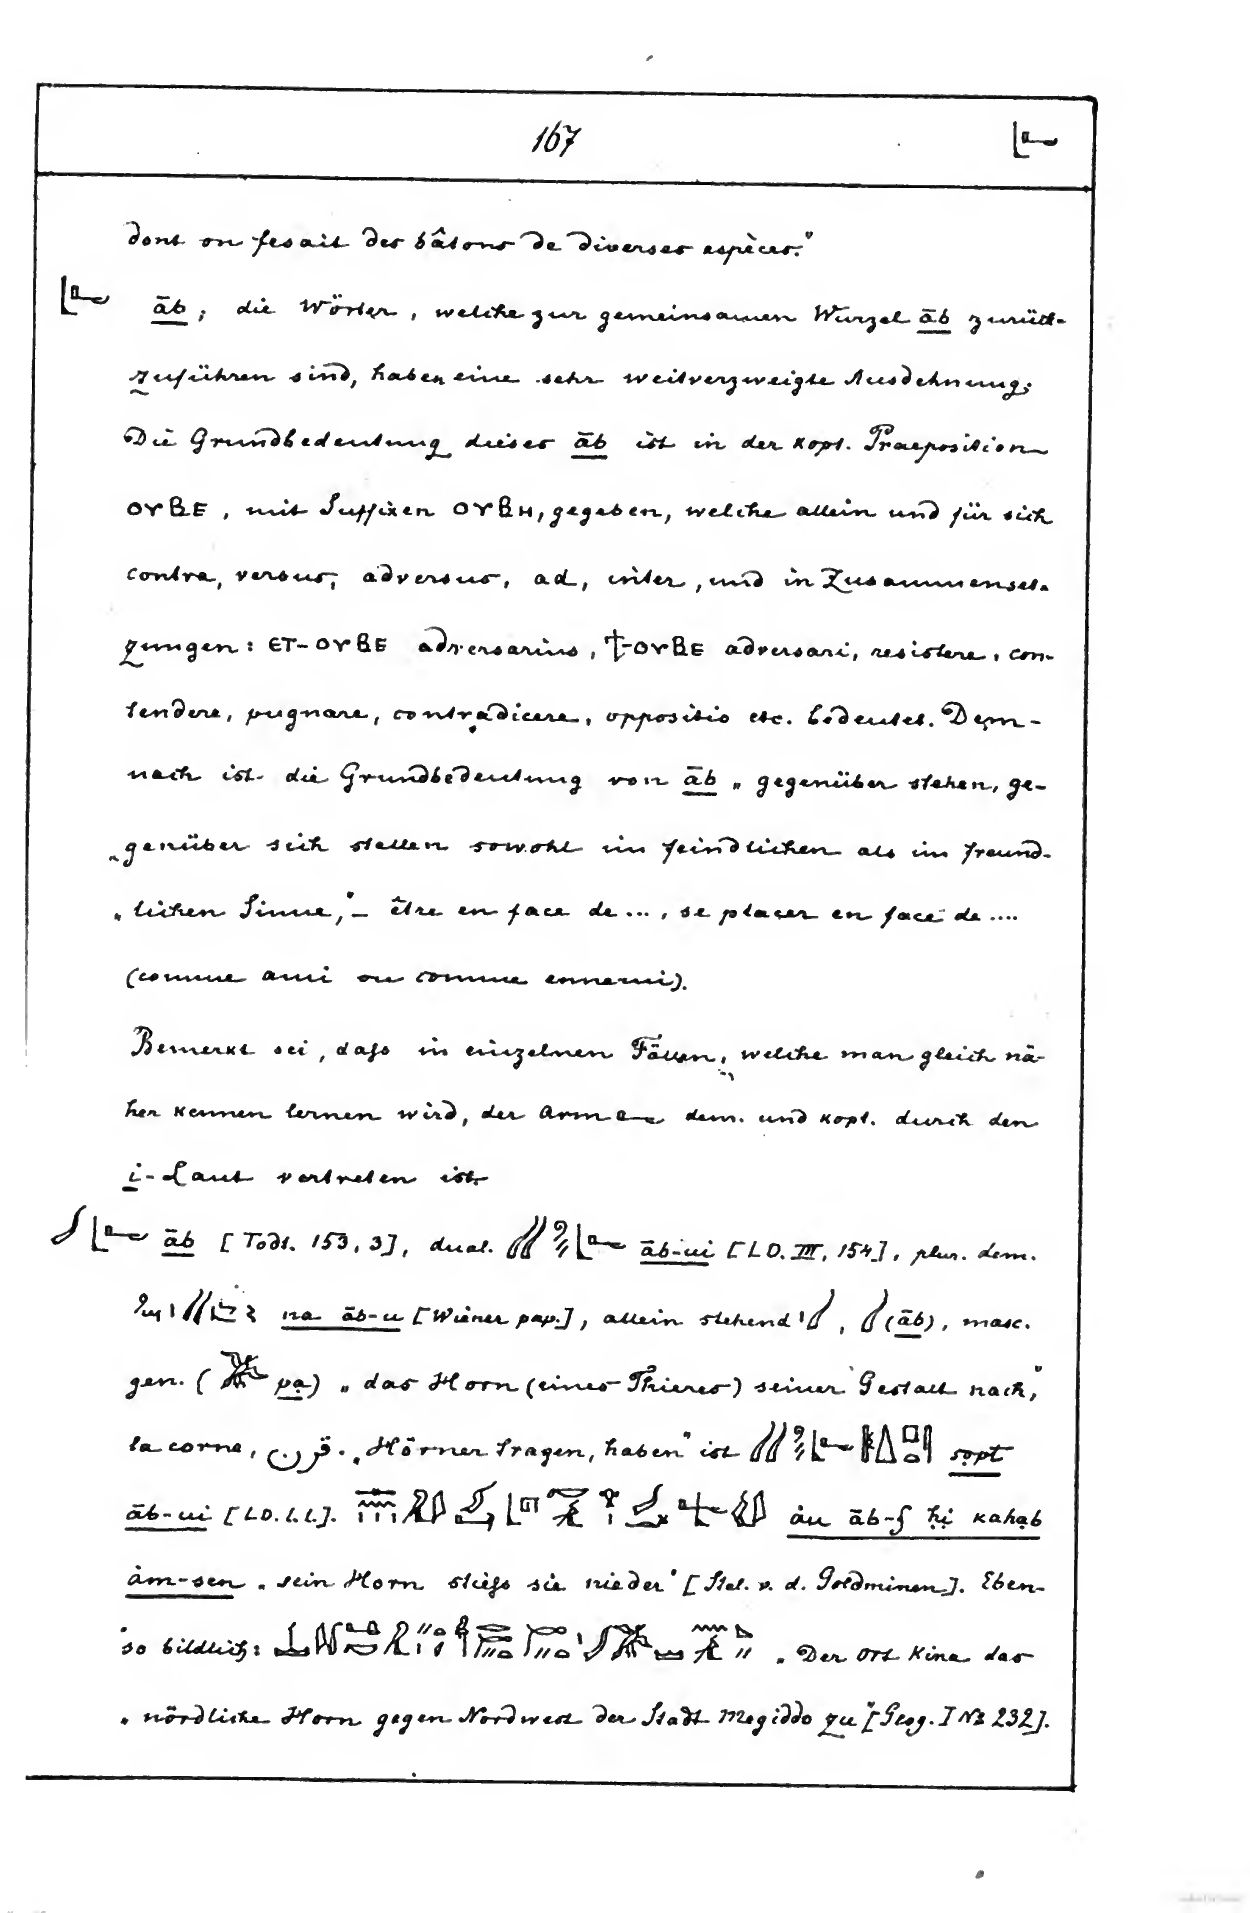 167
dont on fesait des bâtons de diverses espèces."
āb ; die Wörter, welche zur gemeinsamen Wurzel āb zurück-
zuführen sind, haben eine sehr weitverzweigte Ausdehnung.
Die Grundbedeutung dieses āb ist in der kopt. Praeposition
ⲟⲩⲃⲉ, mit Suffixen ⲟⲩⲃⲏ, gegeben, welche allein und für sich
contra, versus, adversus, ad, inter, und in Zusammenset-
zungen: ⲉⲧ-ⲟⲩⲃⲉ adversarius, ϯ-ⲟⲩⲃⲉ adversari, resistere, con-
tendere, pugnare, contradicere, oppositio etc. bedeutet. Dem-
nach ist die Grundbedeutung von āb „gegenüber stehen, ge-
„genüber sich stellen sowohl im feindlichen als im freund-
„lichen Sinne," – être en face de ..., se placer en face de ....
(comme ami ou comme ennemi).
Bemerkt sei, daſs in einzelnen Fällen, welche man gleich nä-
her kennen lernen wird, der Arm 𓂝 dem. und kopt. durch den
i-Laut vertreten ist.
āb [Todt. 153, 3], dual. āb-ui [LD. III, 154], plur. dem.
na āb-u [Wiener pap.], allein stehend , (āb), masc.
gen. ( pa) „das Horn (eines Thieres) seiner Gestalt nach,"
la corne, قرن. „Hörner tragen, haben" ist sopt
āb-ui [LD. l. l.]. àu āb-f ḥi kahab
àm-sen „sein Horn stieſs sie nieder" [Stel. v. d. Goldminen]. Eben-
so bildlich: „Der Ort Kina das
„nördliche Horn gegen Nordwest der Stadt Megiddo zu" [Geog. I № 232].